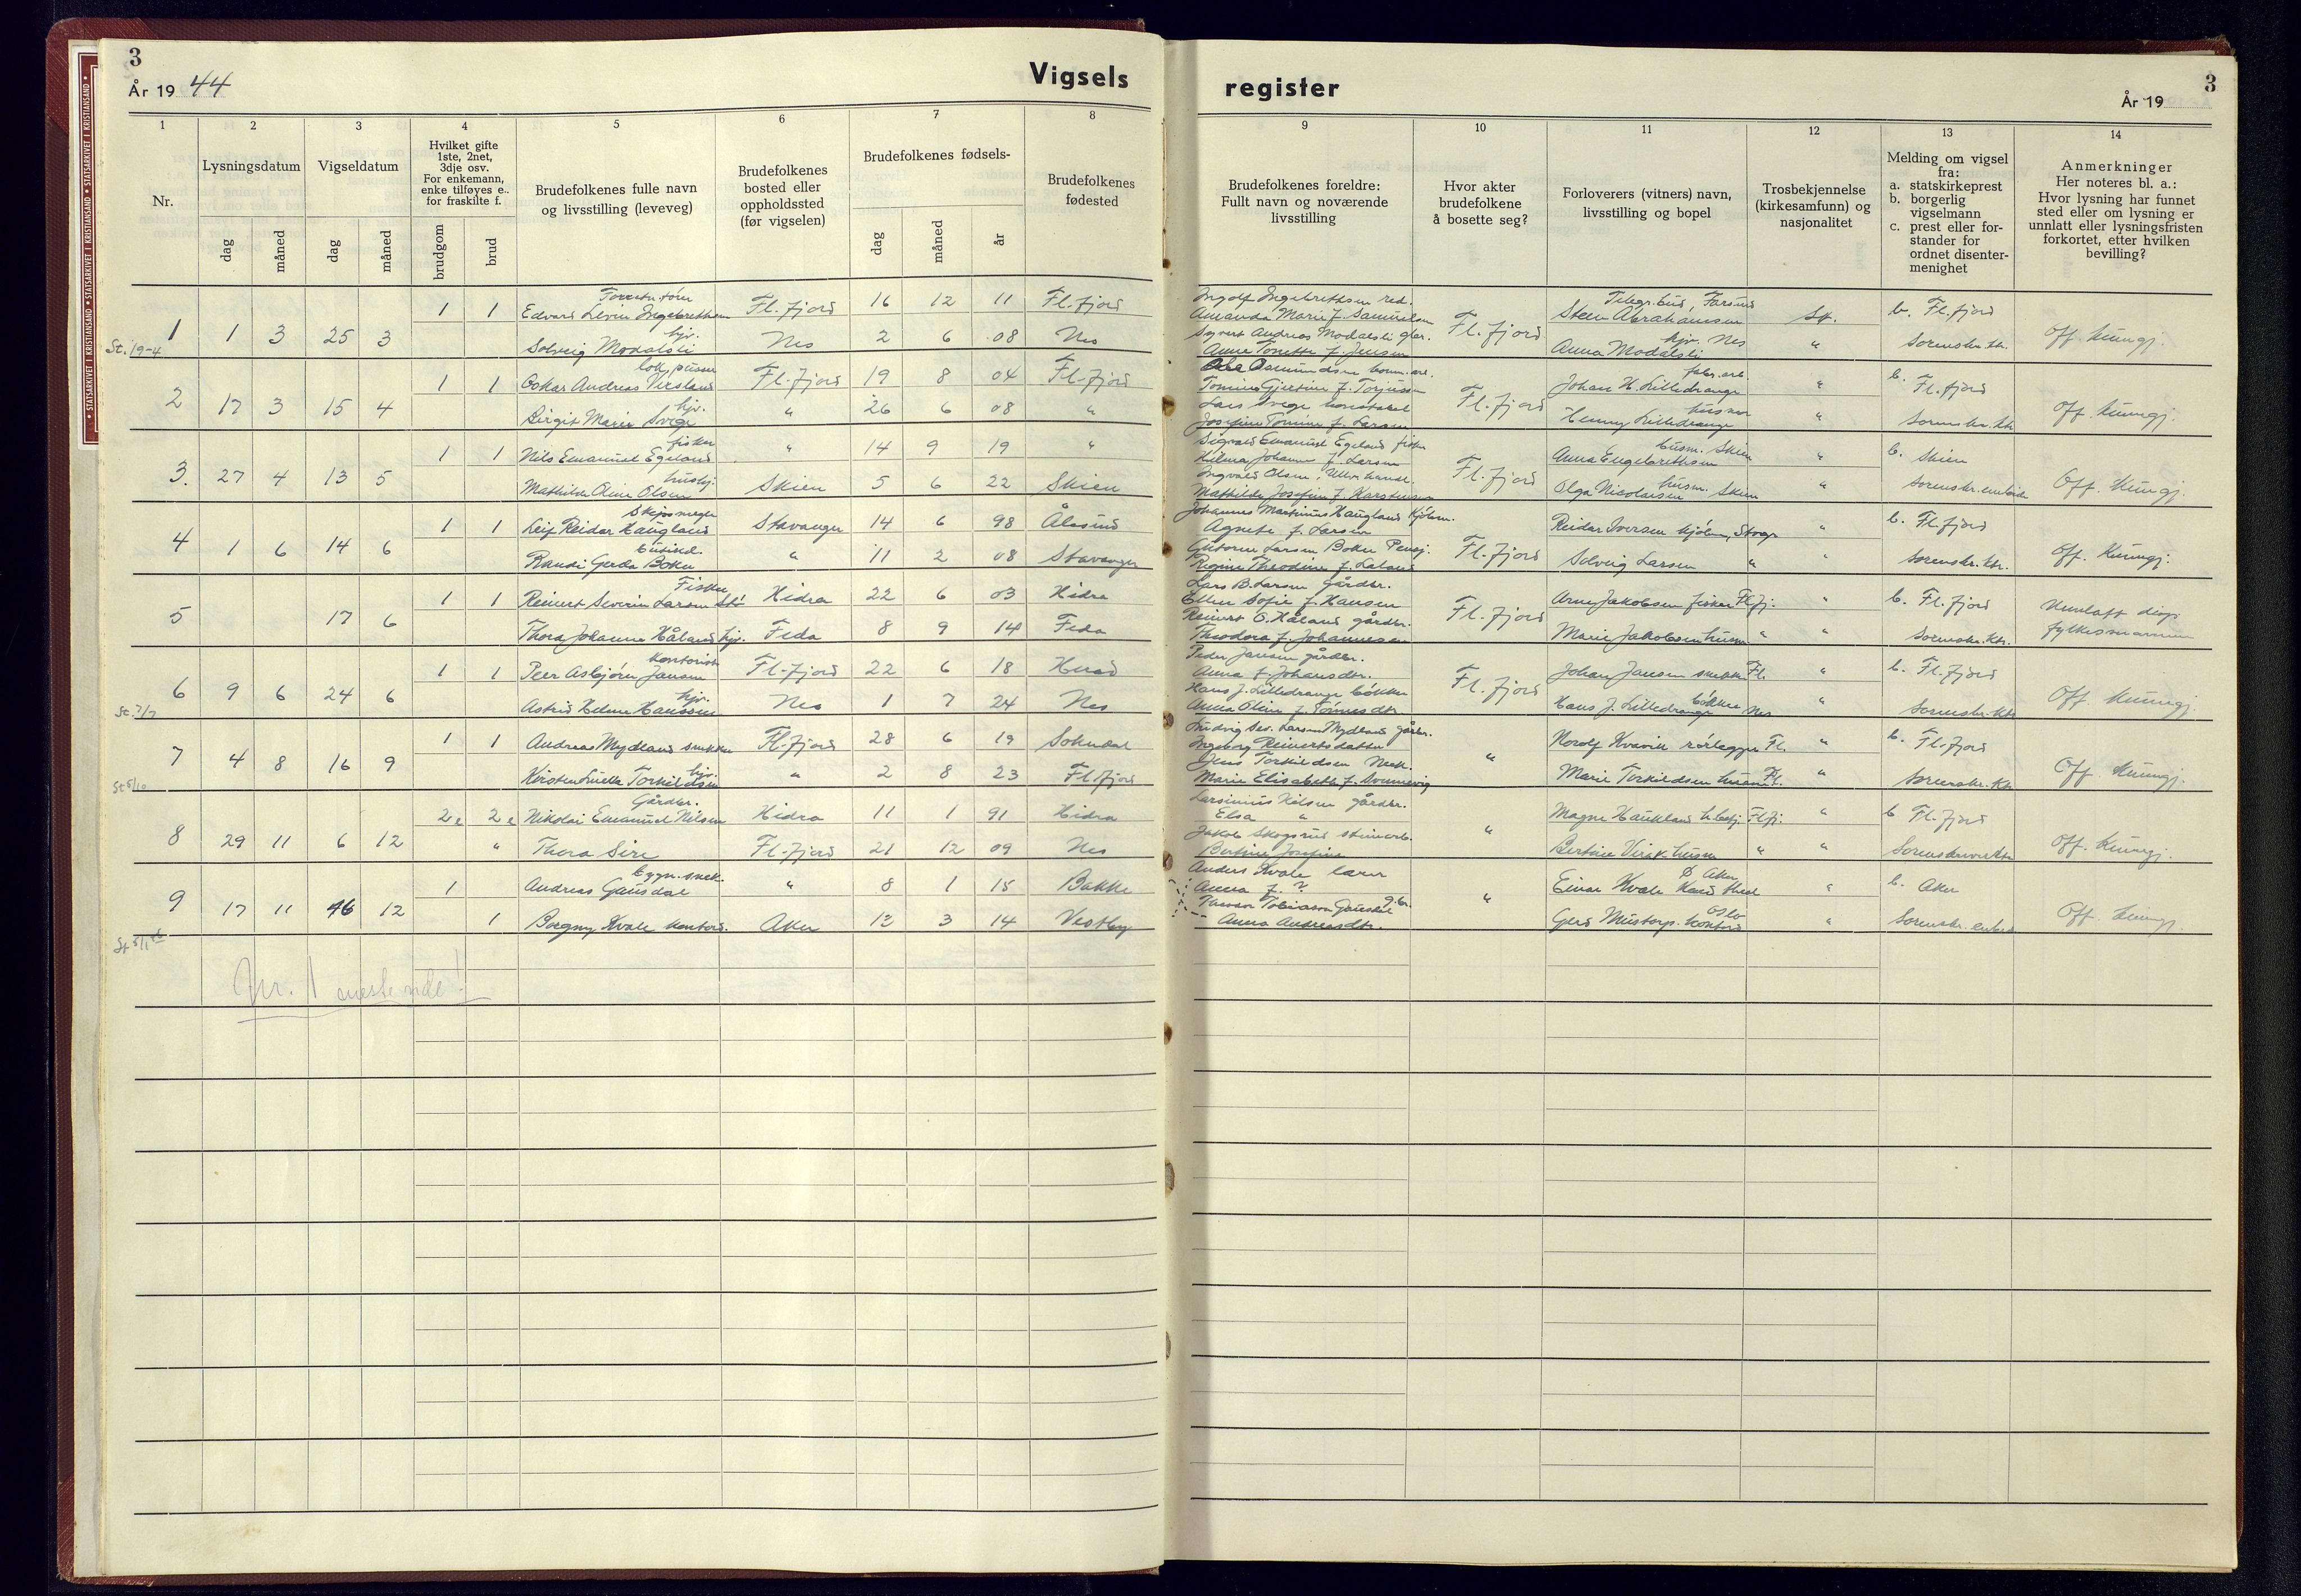 3
År 19 44
Vigsels
register
År 19
3
STATSARKIVET I KRISTIANSAND • STATSARKIVET I KRISTIANSAND
1 2 3 4 5 6 7 8
9 10 11 12 13 14
Nr.
Lysningsdatum
dag måned
Vigseldatum
dag måned
Hvilket gifte
1ste, 2net,
3dje osv.
For enkemann,
enke tilføyes e..
for fraskilte f.
brudgom brud
Brudefolkenes fulle navn
og livsstilling (leveveg)
Brudefolkenes
bosted eller
oppholdssted
(før vigselen)
Brudefolkenes fødsels-
dag måned år
Brudefolkenes
fødested
Brudefolkenes foreldre:
Fullt navn og noværende
livsstilling
Hvor akter
brudefolkene
å bosette seg?
Forloverers (vitners) navn,
livsstilling og bopel
Trosbekjennelse
(kirkesamfunn) og
nasjonalitet
Melding om vigsel
fra:
a. statskirkeprest
b. borgerlig
vigselmann
c. prest eller for-
stander for
ordnet disenter-
menighet
Anmerkninger
Her noteres bl. a.:
Hvor lysning har funnet
sted eller om lysning er
unnlatt eller lysningsfristen
forkortet, etter hvilken
bevilling?
1 1 3 25 3
St. 19-4
1 1 Edvard Ingebrethsen Fl. fjord 16 12 11 Fl. fjord
Solveig Modalsli hjv. Nes 2 6 08 Nes
Ingolf Ingebrethsen red.
Amanda Marie f. Samuelsen
Sigvart Andreas Modalsli gbr.
Anne Tonette f. Jensen
Fl. fjord
Telegr. bud, Farsund
Steen Abrahamsen St.
hjv. Nes
Anna Modalsli "
b. Fl. fjord
Sorenskr. ktr.
Off. kunngj.
2 17 3 15 4
1 1 Oskar Andreas Virsland lok. pusser Fl. fjord 19 8 04 Fl. fjord
Birgit Marie Svege hjv. " 26 6 08 "
Tomine Gjertine f. Torjussen
Lars Svege
Josefine Tomine f. Larsen
Fl. fjord
fabr. arb.
Johan H. Lilledrange "
husmor
Henny Lilledrange "
b. Fl. fjord
Sorenskr. ktr.
Off. kunngj.
3. 27 4 13 5
1 1 Nils Emanuel Egeland fisker " 14 9 19 "
Mathilde Oline Olsen hushj. Skien 5 6 22 Skien
Sigvald Emanuel Egeland fisker
Hilma Johanne f. Larsen
Ingvald Olsen,
Mathilde Josefine f. Karstensen
Fl. fjord
husm. Skien
Anna Engebrethsen "
husm. Skien
Olga Nicolaisen "
b. Skien
Sorenskr. embede
Off. kunngj.
4 1 6 14 6
1 1 Leif Reidar Haugland Skipsmegler Stavanger 14 6 98 Ålesund
Randi Gerda Boken " 11 2 08 Stavanger
Johannes Martinius Haugland Kjøbm.
Agnete f. Larsen
Guttorm Larsen Boken Pensj.
Regine Theodine f. Laland
Fl. fjord
Reidar Iversen kjøbm, Stvgr "
Solveig Larsen " "
b. Fl. fjord
Sorenskr. ktr.
Off. kunngj.
5 17 6
1 1 Reinert Severin Larsen Fisker Hidra 22 6 03 Hidra
Thora Johanne Håland hjv. Feda 8 9 14 Feda
Lars B. Larsen gårdbr.
Ellen Sofie f. Hansen
Reinert O. Håland gårdbr.
Theodora f. Johannesen
Fl. fjord
Arne Jakobsen fisker Fl.fj. "
Marie Jakobsen husm " "
b. Fl. fjord
Sorenskr. ktr.
Unnlatt
fylkesmannen
6 9 6 24 6
St. 7/7
1 1 Peer Asbjørn Jansen kontorist Fl. fjord 22 6 18 Herad
Astrid Helene Hanssen hjv. Nes 1 7 24 Nes
Peder Jansen gårdbr.
Anna f. Johansdtr.
Hans J. Lilledrange bøkker
Anna Oline f. Tønnesdtr.
Fl. fjord
Johan Jansen snekker Fl. "
Hans J. Lilledrange bøkker Nes "
b. Fl. fjord
Sorenskr. ktr
Off kunngj.
7 4 8 16 9
St 5/10
1 1 Andreas Mydland snekker Fl. fjord 28 6 19 Sokndal
Kirsten Torkildsen hjv. " 2 8 23 Fl. fjord
Ludvig Sev. Larsen Mydland gårdbr.
Ingeborg Reinertsdatter
Jens Torkildsen
Marie Elisabeth f. Sonnevig
"
Nordf Kvavik rørlegger Fl. "
Marie Torkildsen husm Fl. "
b. Fl. fjord
Sorenskr. ktr
Off. kunngj.
8 29 11 6 12
2e 2e Nikolai Emanuel Nilsen Gårdbr. Hidra 11 1 91 Hidra
" Thora Sire Fl. fjord 21 12 09 Nes
Larsinius Nilsen gårdbr.
Elsa "
Jakob Skogsrud
Bertine Josefine
"
Magne Haukland Fl.fj. "
Bertine Virak husm " "
b Fl. fjord
Off. kunngj.
9 17 11 16 12
St 5/1
1 Andreas Gausdal bygn. snek. " 8 1 15 Bakke
1 Borgny Kvale kontord. Aker 12 3 14 Vestby
Anders Kvale lærer
Anna f. ?
Tobiassen Gausdal g.br.
Anna Andreasdtr.
"
Ø. Aker
Einar Kvale "
Oslo
Gerd Mustorp. kontord "
b. Aker
Sorenskr. embed
Off. kunngj.
Jnr. 1 neste side!